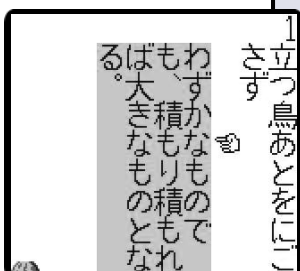 1立つ鳥あとをにご
さず
わずかなもので
も、積もり積もれ
ば大きなものとな
る。